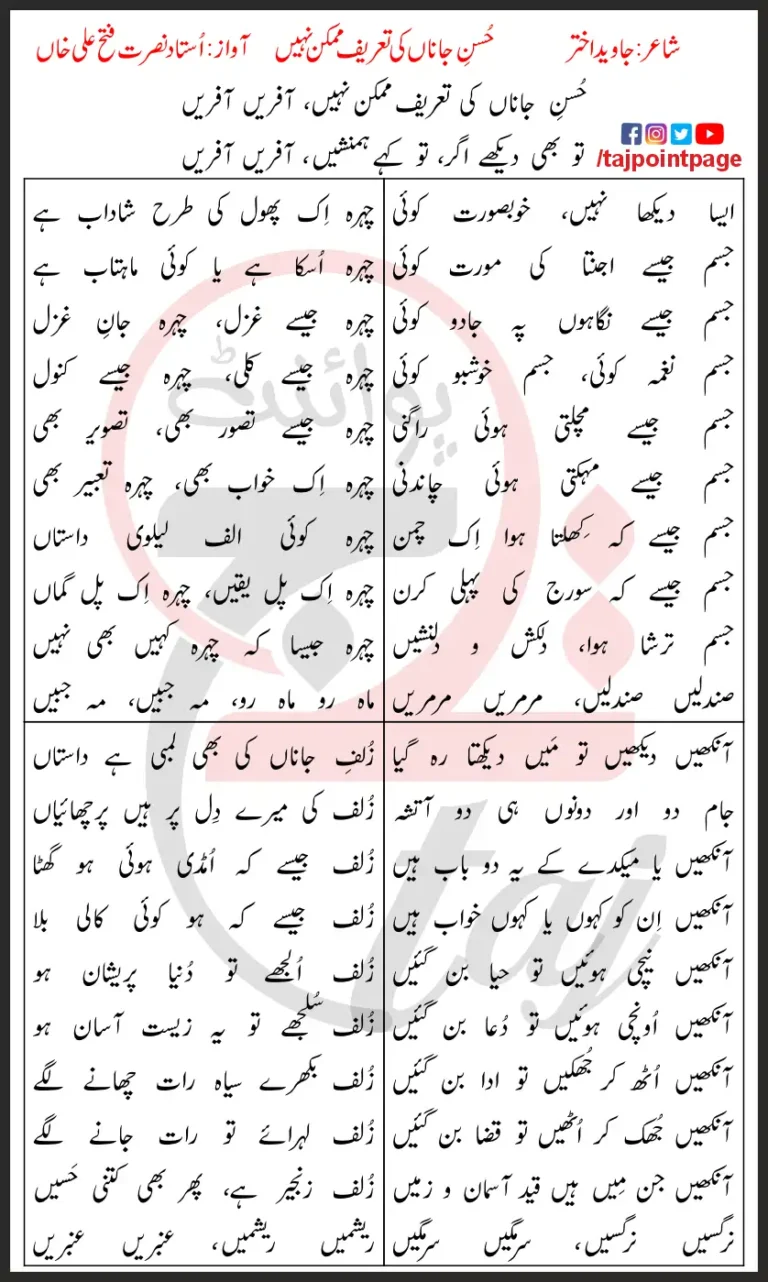 شاعر: جاوید اختر حُسنِ جاناں کی تعریف ممکن نہیں آواز: اُستاد نصرت فتح علی خاں
حُسنِ جاناں کی تعریف ممکن نہیں، آفریں آفریں
تو بھی دیکھے اگر، تو کہے ہمنشیں، آفریں آفریں
/tajpointpage
ایسا دیکھا نہیں، خوبصورت کوئی
جسم جیسے اجنتا کی مورت کوئی
جسم جیسے نگاہوں پہ جادو کوئی
جسم نغمہ کوئی، جسم خوشبو کوئی
جسم جیسے مچلتی ہوئی راگنی
جسم جیسے مہکتی ہوئی چاندنی
جسم جیسے کہ کِھلتا ہوا اِک چمن
جسم جیسے کہ سورج کی پہلی کرن
جسم ترشا ہوا، دلکش و دلنشیں
صندلیں صندلیں، مرمریں مرمریں
چہرہ اِک پھول کی طرح شاداب ہے
چہرہ اُسکا ہے یا کوئی ماہتاب ہے
چہرہ جیسے غزل، چہرہ جانِ غزل
چہرہ جیسے کلی، چہرہ جیسے کنول
چہرہ جیسے تصور بھی، تصویر بھی
چہرہ اِک خواب بھی، چہرہ تعبیر بھی
چہرہ کوئی الف لیلوی داستاں
چہرہ اِک پل یقیں، چہرہ اِک پل گماں
چہرہ جیسا کہ چہرہ کہیں بھی نہیں
ماہ رو ماہ رو، مہ جبیں، مہ جبیں
آنکھیں دیکھیں تو مَیں دیکھتا رہ گیا
جام دو اور دونوں ہی دو آتشہ
آنکھیں یا میکدے کے یہ دو باب ہیں
آنکھیں اِن کو کہوں یا کہوں خواب ہیں
آنکھیں نیچی ہوئیں تو حیا بن گئیں
آنکھیں اُونچی ہوئیں تو دُعا بن گئیں
آنکھیں اُٹھ کر جُھکیں تو ادا بن گئیں
آنکھیں جُھک کر اُٹھیں تو قضا بن گئیں
آنکھیں جن مِیں ہیں قید آسمان و زمیں
نرگسیں نرگسیں، سرمگیں سرمگیں
زُلفِ جاناں کی بھی لمبی ہے داستاں
زُلف کی میرے دِل پر ہیں پرچھائیاں
زُلف جیسے کہ اُمڈی ہوئی ہو گھٹا
زُلف جیسے کہ ہو کوئی کالی بلا
زُلف اُلجھے تو دُنیا پریشان ہو
زُلف سُلجھے تو یہ زیست آسان ہو
زُلف بکھرے سیاہ رات چھانے لگے
زُلف لہرائے تو رات جانے لگے
زُلف زنجیر ہے، پھر بھی کتنی حَسیں
ریشمیں ریشمیں، عنبریں عنبریں
پوائنٹ
تاج
taj